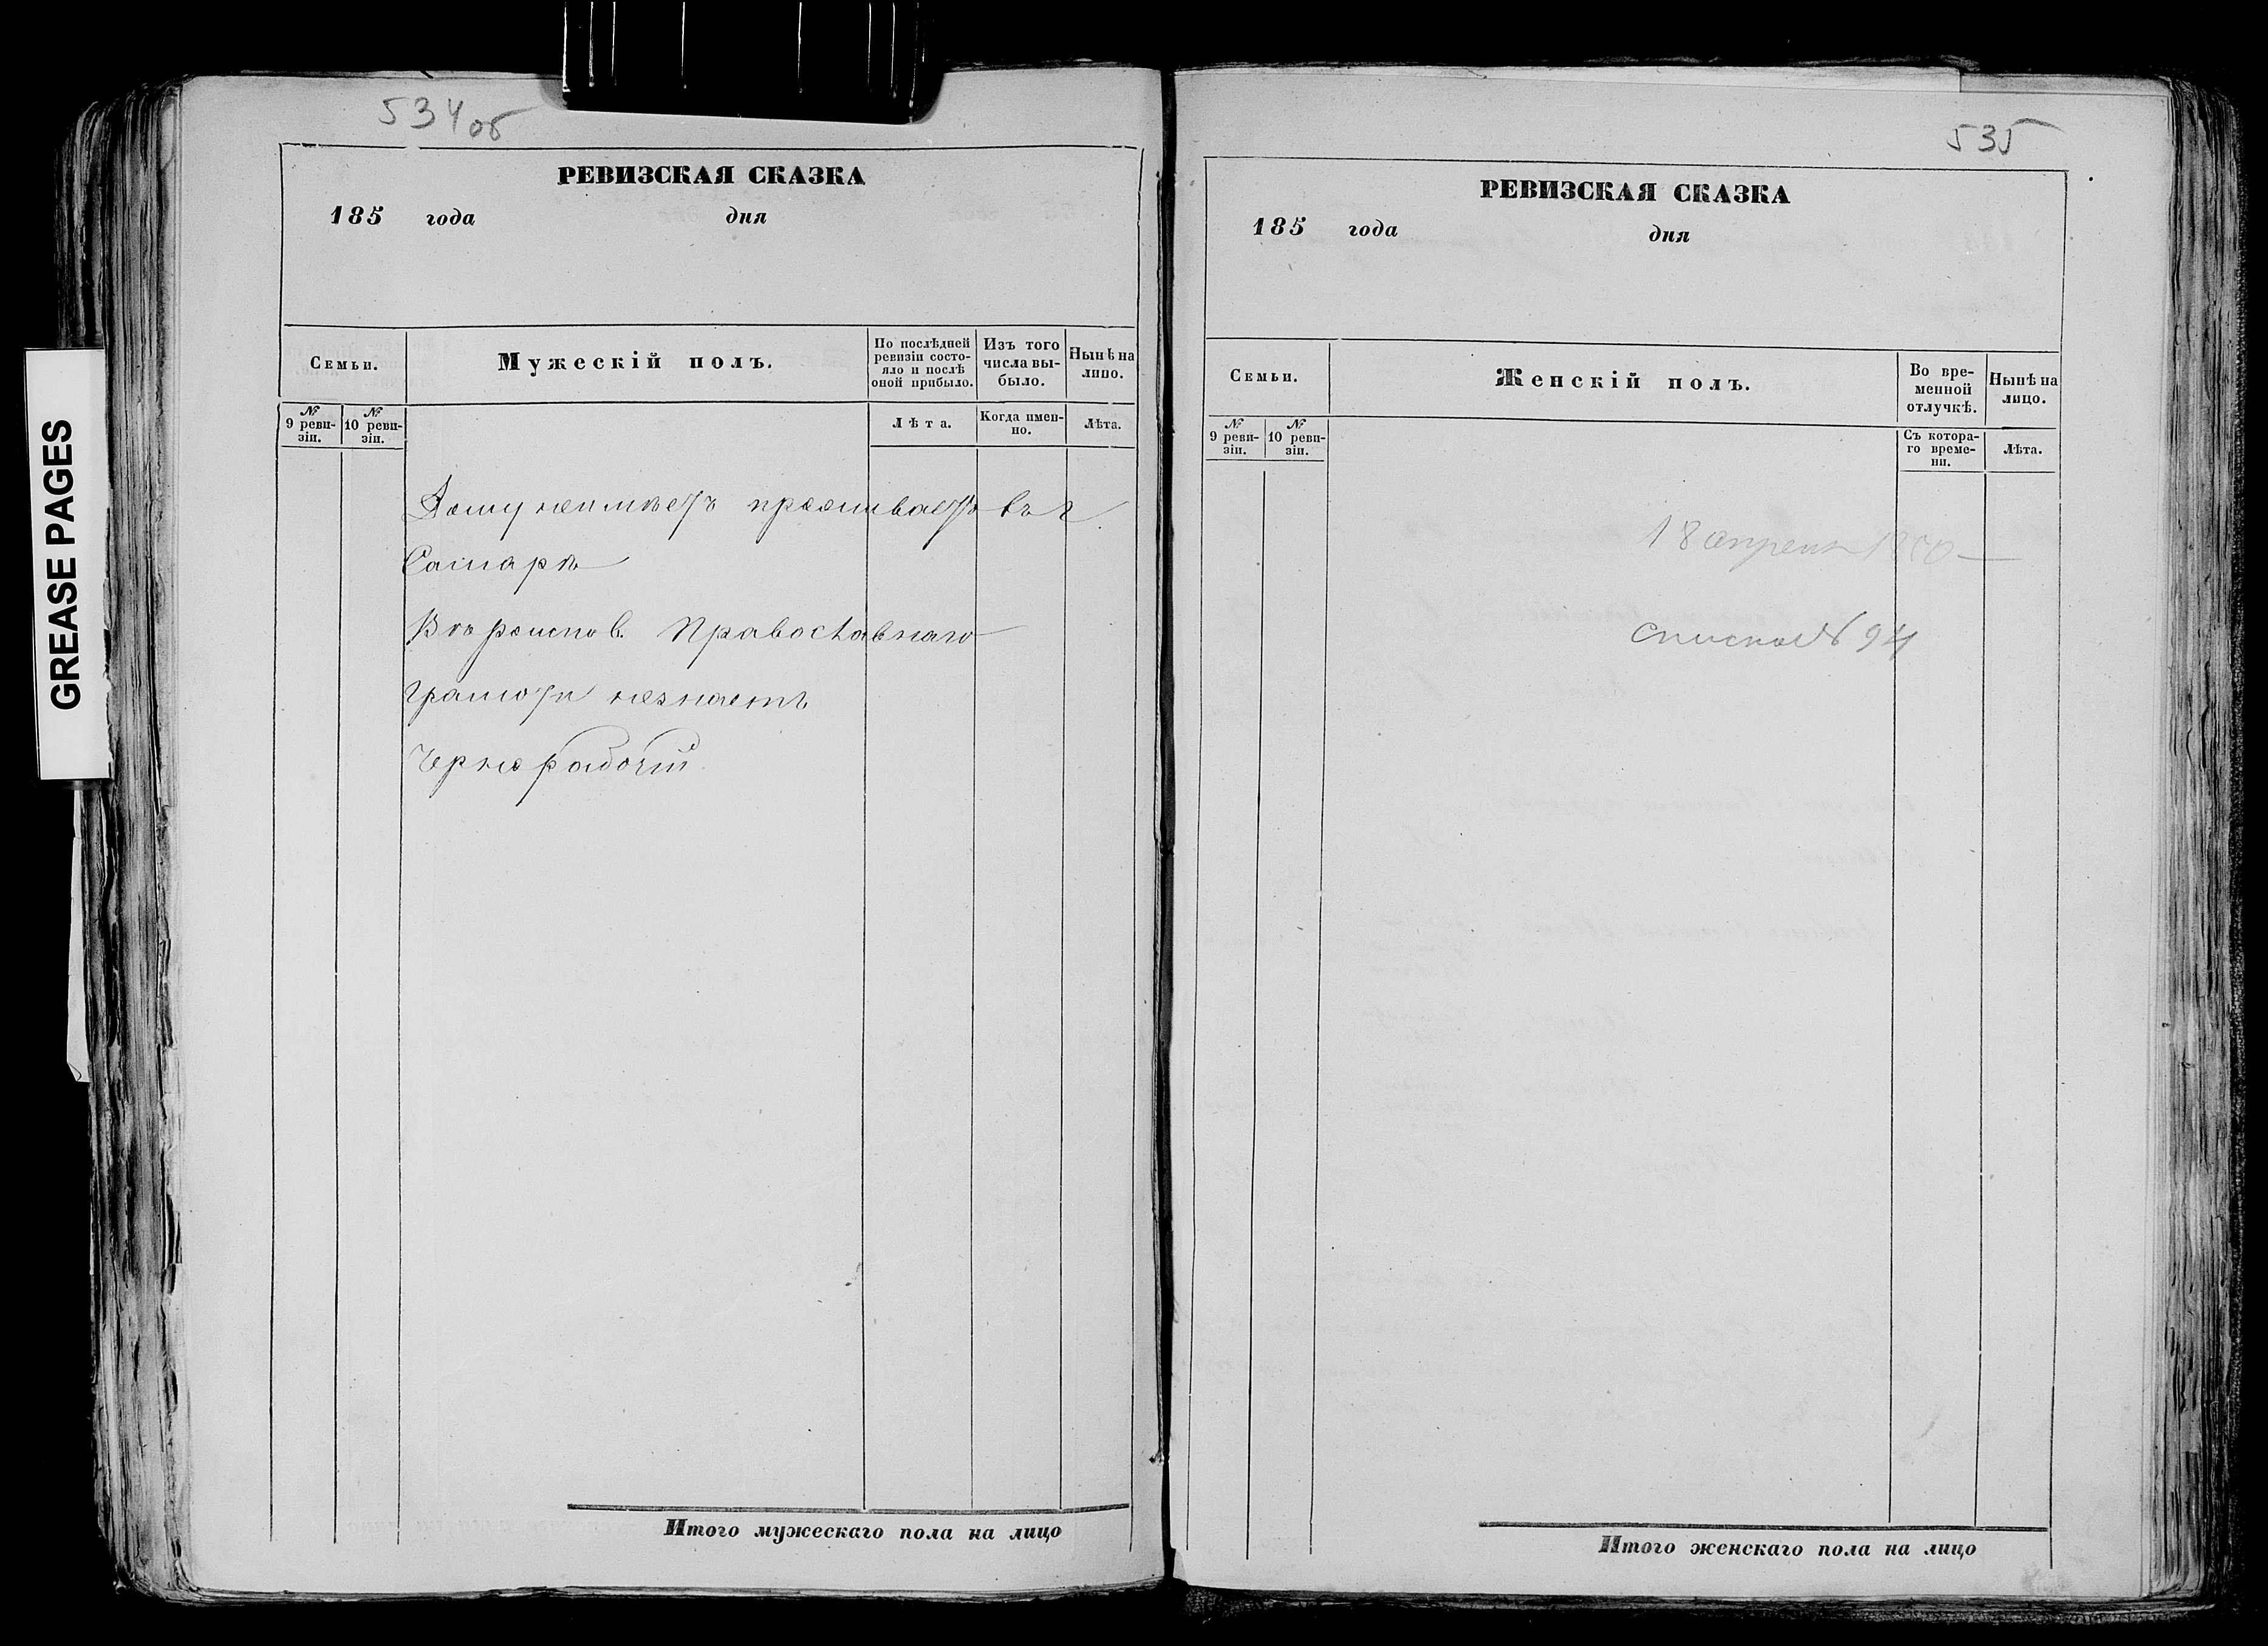 GREASE PAGES
534об
РЕВИЗСКАЯ СКАЗКА
185 года дня
Семьи.
Мужескій полъ.
По послѣдней ревизіи состояло и послѣ оной прибыло.
Изъ того числа выбыло.
Нынѣ на лицо.
№ 9 ревизіи.
№ 10 ревизіи.
Лѣта.
Когда именно.
Лѣта.
Дому неимѣетъ проживаетъ въ г.
Самарѣ
Вѣроиспов. Православнаго
Грамоты незнаетъ
Чернорабочій
Итого мужескаго пола на лицо
535
РЕВИЗСКАЯ СКАЗКА
185 года дня
Семьи.
Женскій полъ.
Во временной отлучкѣ.
Нынѣ на лицо.
№ 9 ревизіи.
№ 10 ревизіи.
Съ котораго времени.
Лѣта.
18 апреля
списка № 94
Итого женскаго пола на лицо